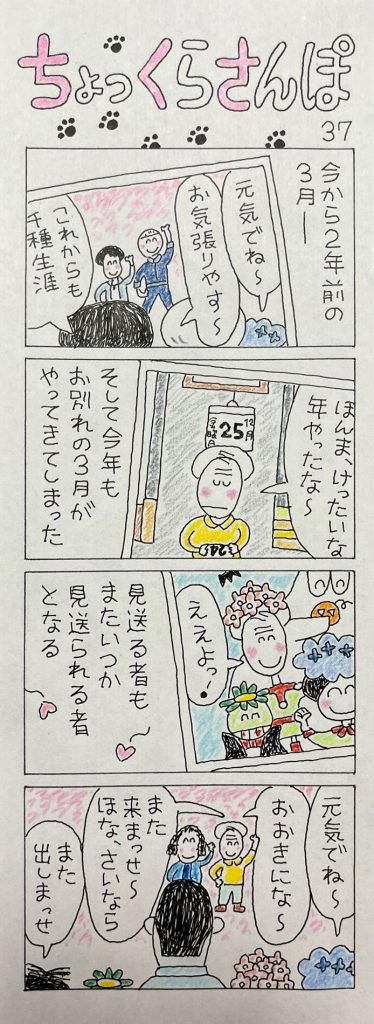 ちょっくらさんぽ
37
今から2年前の
3月―
元気でね〜
お気張りやす〜
これからも
千種生涯
ほんま、けったいな
年やったな〜
12月
25
金曜日
そして今年も
お別れの3月が
やってきてしまった
ええよっ!
見送る者も
またいつか
見送られる者
となる
元気でね〜
おおきにな〜
また
来まっせ〜
ほな、さいなら
また
出しまっせ